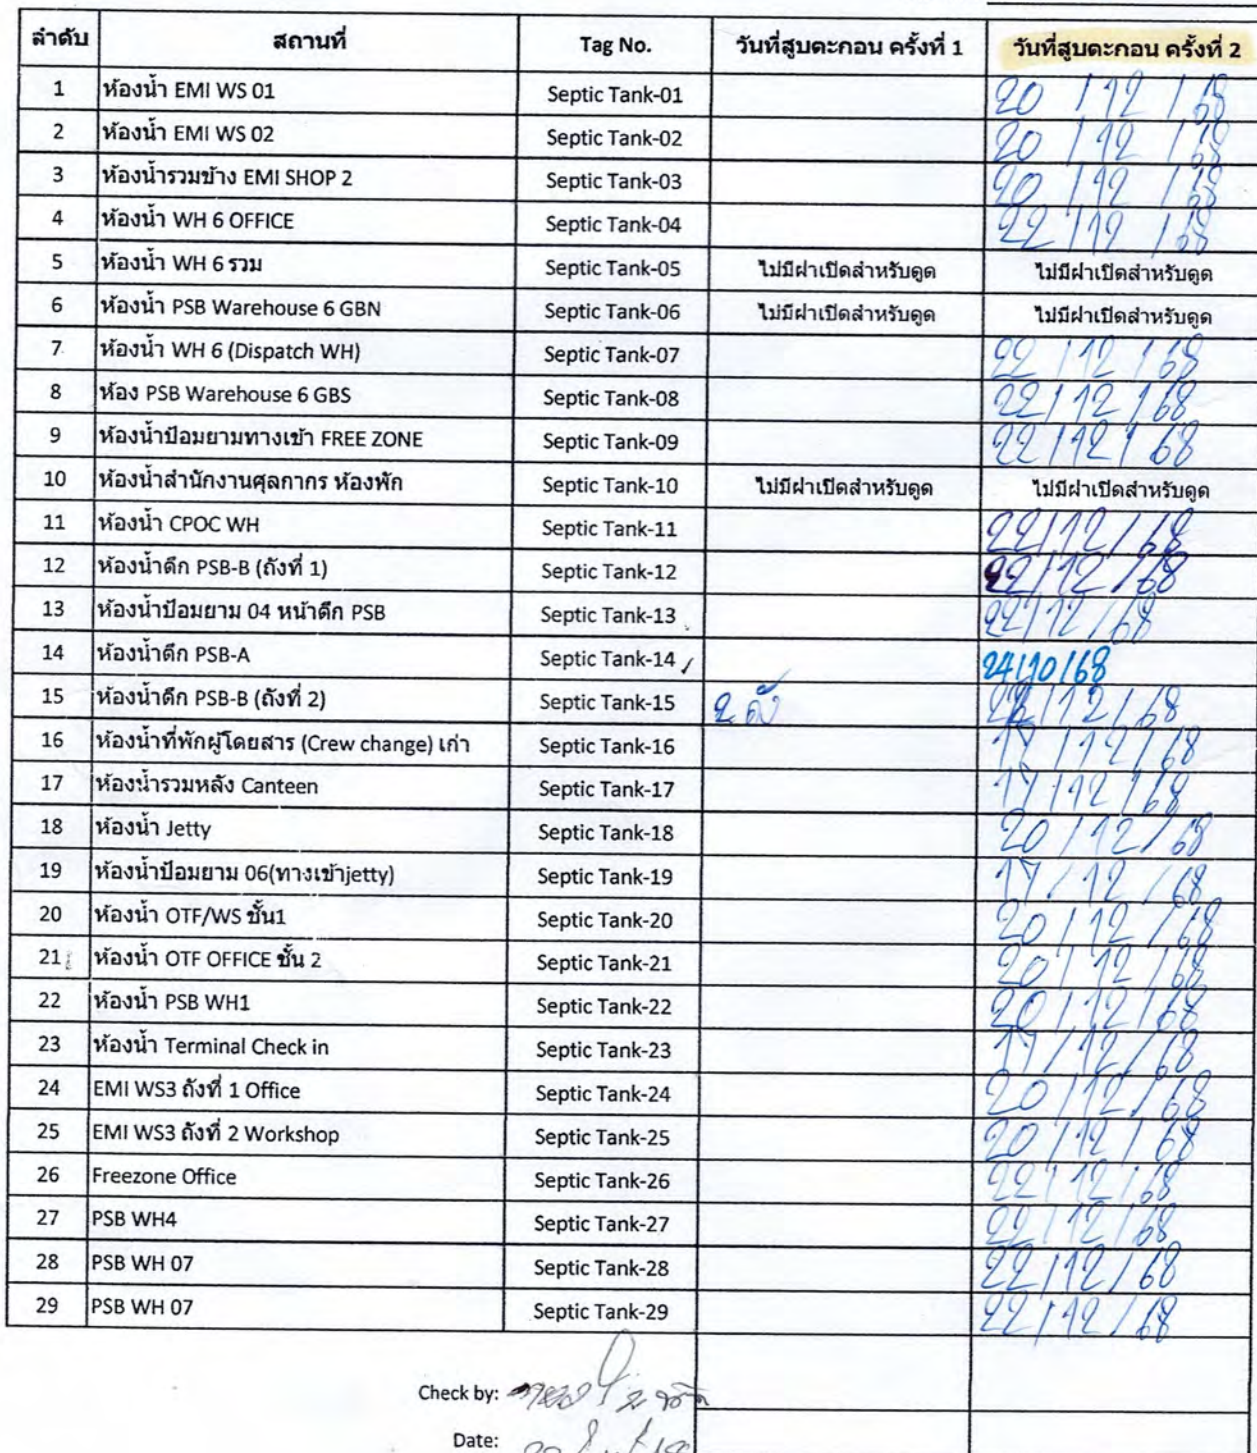 ลำดับ สถานที่ Tag No. วันที่สูบตะกอน ครั้งที่ 1 วันที่สูบตะกอน ครั้งที่ 2
1 ห้องน้ำ EMI WS 01 Septic Tank-01 20/12/68
2 ห้องน้ำ EMI WS 02 Septic Tank-02 20/12/68
3 ห้องน้ำรวมข้าง EMI SHOP 2 Septic Tank-03 20/12/68
4 ห้องน้ำ WH 6 OFFICE Septic Tank-04 22/12/68
5 ห้องน้ำ WH 6 รวม Septic Tank-05 ไม่มีฝาเปิดสำหรับดูด ไม่มีฝาเปิดสำหรับดูด
6 ห้องน้ำ PSB Warehouse 6 GBN Septic Tank-06 ไม่มีฝาเปิดสำหรับดูด ไม่มีฝาเปิดสำหรับดูด
7 ห้องน้ำ WH 6 (Dispatch WH) Septic Tank-07 22/12/68
8 ห้อง PSB Warehouse 6 GBS Septic Tank-08 22/12/68
9 ห้องน้ำป้อมยามทางเข้า FREE ZONE Septic Tank-09 22/12/68
10 ห้องน้ำสำนักงานศุลกากร ห้องพัก Septic Tank-10 ไม่มีฝาเปิดสำหรับดูด ไม่มีฝาเปิดสำหรับดูด
11 ห้องน้ำ CPOC WH Septic Tank-11 22/12/68
12 ห้องน้ำตึก PSB-B (ถังที่ 1) Septic Tank-12 22/12/68
13 ห้องน้ำป้อมยาม 04 หน้าตึก PSB Septic Tank-13 22/12/68
14 ห้องน้ำตึก PSB-A Septic Tank-14 24/10/68
15 ห้องน้ำตึก PSB-B (ถังที่ 2) Septic Tank-15 22/12/68
16 ห้องน้ำที่พักผู้โดยสาร (Crew change) เก่า Septic Tank-16 17/12/68
17 ห้องน้ำรวมหลัง Canteen Septic Tank-17 17/12/68
18 ห้องน้ำ Jetty Septic Tank-18 20/12/68
19 ห้องน้ำป้อมยาม 06(ทางเข้าjetty) Septic Tank-19 17/12/68
20 ห้องน้ำ OTF/WS ชั้น1 Septic Tank-20 20/12/68
21 ห้องน้ำ OTF OFFICE ชั้น 2 Septic Tank-21 20/12/68
22 ห้องน้ำ PSB WH1 Septic Tank-22 20/12/68
23 ห้องน้ำ Terminal Check in Septic Tank-23 17/12/68
24 EMI WS3 ถังที่ 1 Office Septic Tank-24 20/12/68
25 EMI WS3 ถังที่ 2 Workshop Septic Tank-25 20/12/68
26 Freezone Office Septic Tank-26 22/12/68
27 PSB WH4 Septic Tank-27 22/12/68
28 PSB WH 07 Septic Tank-28 22/12/68
29 PSB WH 07 Septic Tank-29 22/12/68
Check by:
Date: